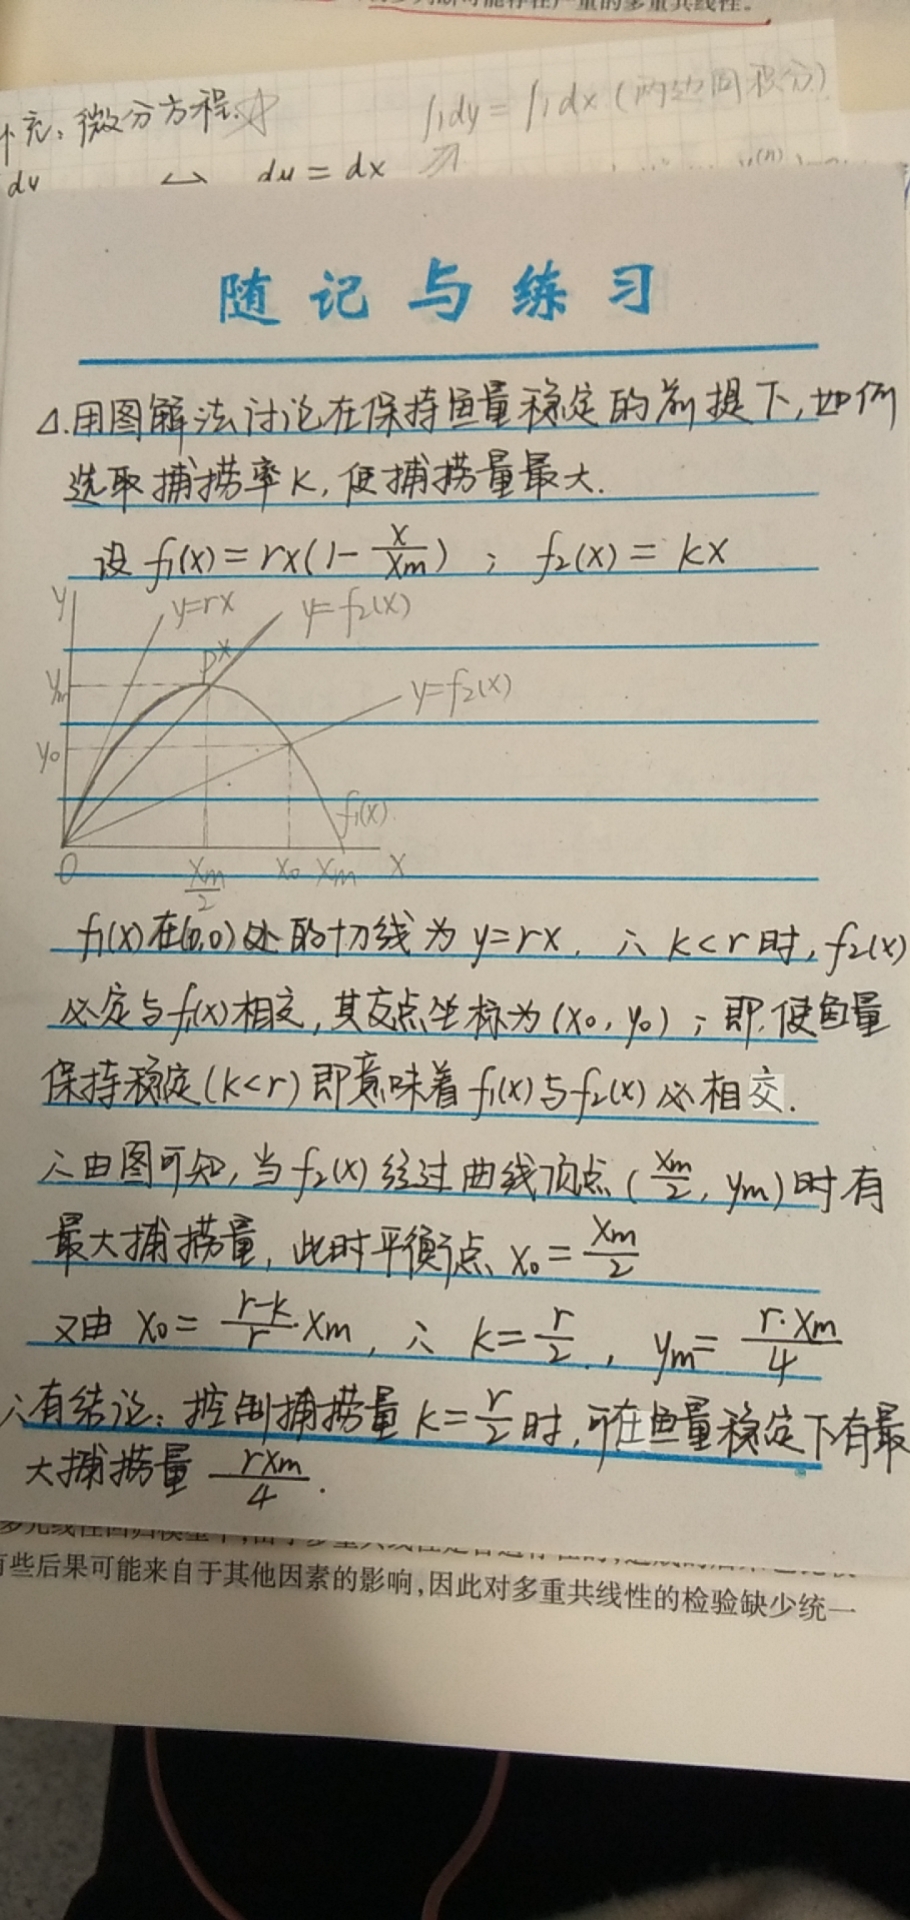 严重的多重共线性。
补充:微分方程☆
∫1dy = ∫1dx (两边同积分)
dy ↔ dy = dx
随记与练习
△.用图解法讨论在保持鱼量稳定的前提下,如何
选取捕捞率K,使捕捞量最大.
设 f₁(x) = rx(1-x/xm) ; f₂(x) = kx
y
y=rx
y=f₂(x)
P*
ym
y=f₂(x)
y₀
f₁(x)
0
xm/2
x₀
xm
x
f₁(x)在(0,0)处的切线为y=rx. ∴ k<r时,f₂(x)
必定与f₁(x)相交,其交点坐标为(x₀,y₀);即,使鱼量
保持稳定(k<r)即意味着f₁(x)与f₂(x)必相交.
∴由图可知,当f₂(x)经过曲线顶点(xm/2, ym)时有
最大捕捞量,此时平衡点 x₀ = xm/2
又由 x₀ = (r-k)/r·xm, ∴ k = r/2., ym = r·xm/4
∴有结论:控制捕捞量k=r/2时,可在鱼量稳定下有最
大捕捞量 rxm/4.
有些后果可能来自于其他因素的影响,因此对多重共线性的检验缺少统一